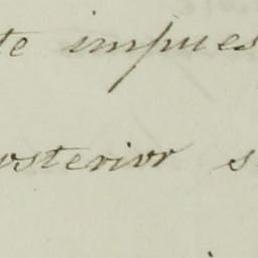 te impues
osterior s